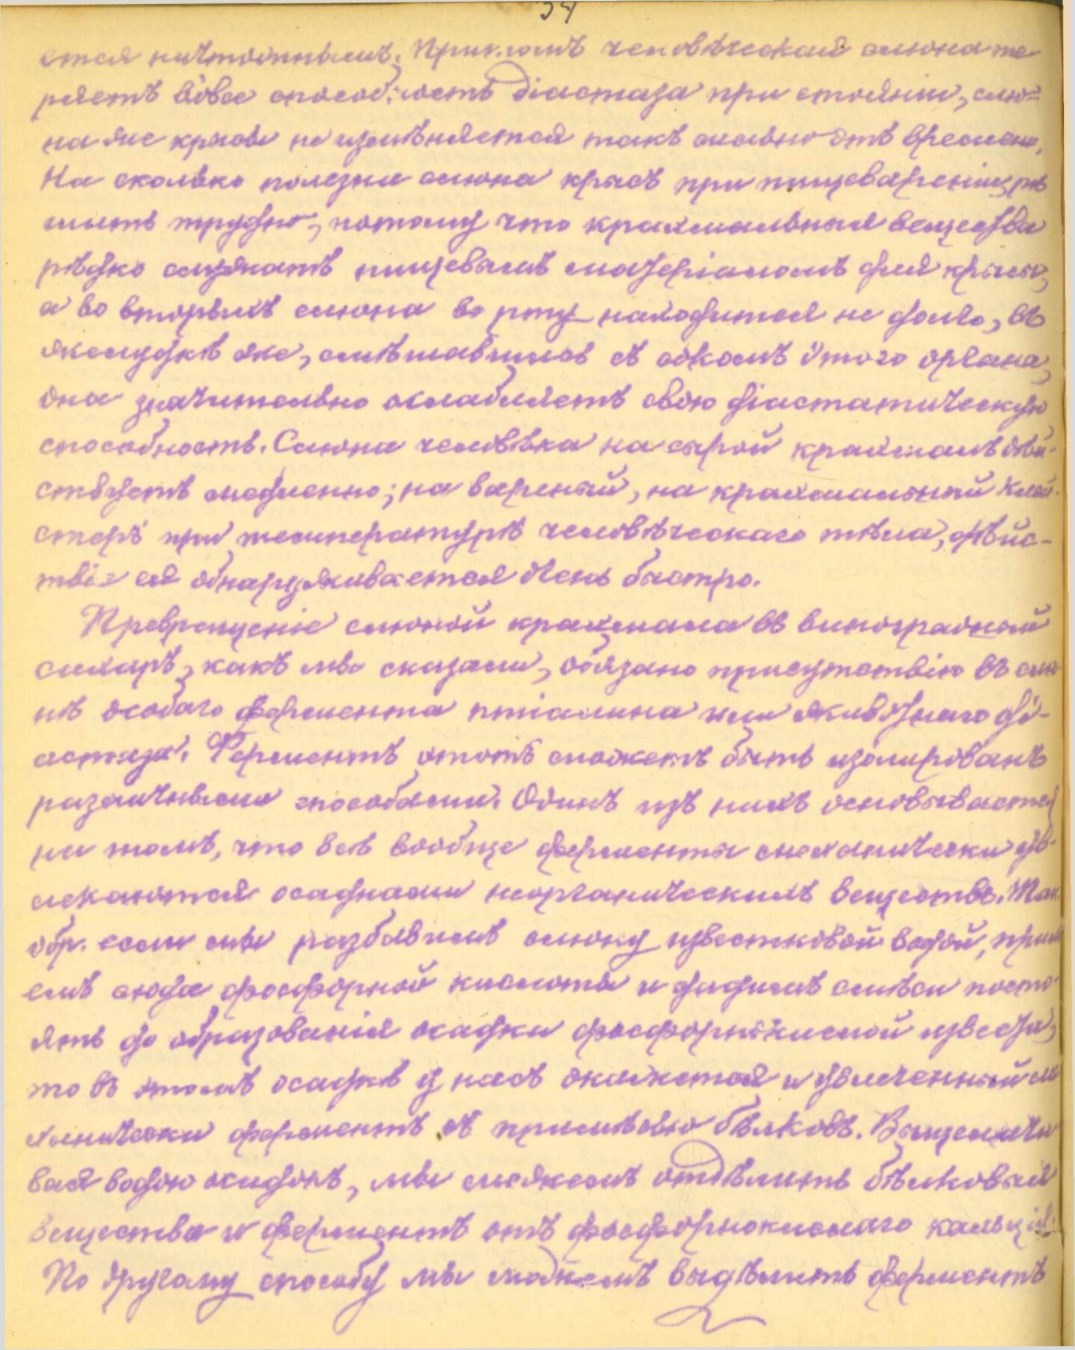 34
ется ничтожнымъ. Притомъ человѣческая слюна те-
ряетъ вовсе способность діастаза при стояніи, слю-
на же крысы не измѣняется такъ сильно отъ времени.
На сколько полезна слюна крысъ при пищевареніи, рѣ
шить трудно, потому что крахмальныя вещества
рѣдко служатъ пищевымъ матеріаломъ для крысы,
а во вторыхъ слюна во рту находится не долго, въ
желудкѣ же, смѣшавшись съ сокомъ этого органа,
она значительно ослабляетъ свою діастатическую
способность. Слюна человѣка на сырой крахмалъ дѣй-
ствуетъ медленно; на вареный, на крахмальный клей-
стеръ при температурѣ человѣческаго тѣла, дѣйс-
твіе ея обнаруживается очень быстро.
Превращеніе слюной крахмала въ виноградный
сахаръ, какъ мы сказали, обязано присутствію въ слю
нѣ особаго фермента птіалина или животнаго ді-
астаза. Ферментъ этотъ можетъ быть изолированъ
различными способами. Одинъ изъ нихъ основывается
на томъ, что всѣ вообще ферменты механически ув-
лекаются осадками неорганическихъ веществъ. Так.
обр. если мы разбавимъ слюну известковой водой,
емъ сюда фосфорной кислоты и дадимъ смѣси посто-
ять до образованія осадка фосфорнокислой извести,
то въ этомъ осадкѣ у насъ окажется и увлеченный ме
ханически ферментъ съ примѣсью бѣлковъ. Выщелачи
вая водою осадокъ, мы можемъ отдѣлить бѣлковыя
вещества и ферментъ отъ фосфорнокислаго кальція.
По другому способу мы можемъ выдѣлить ферментъ